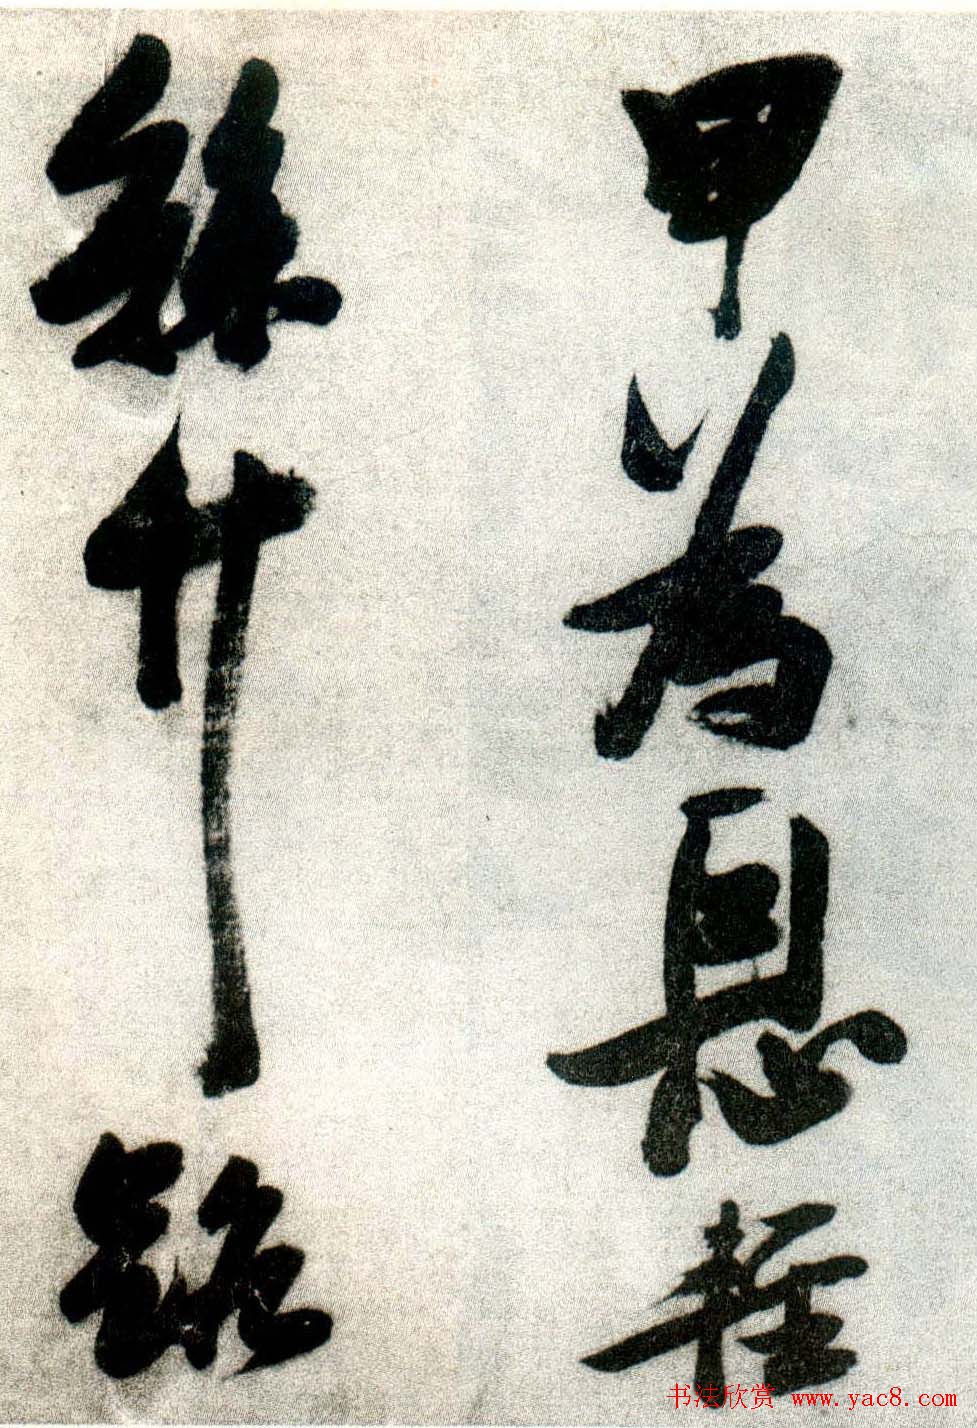 甲為息輕
絲竹
书法欣赏 www.yac8.com